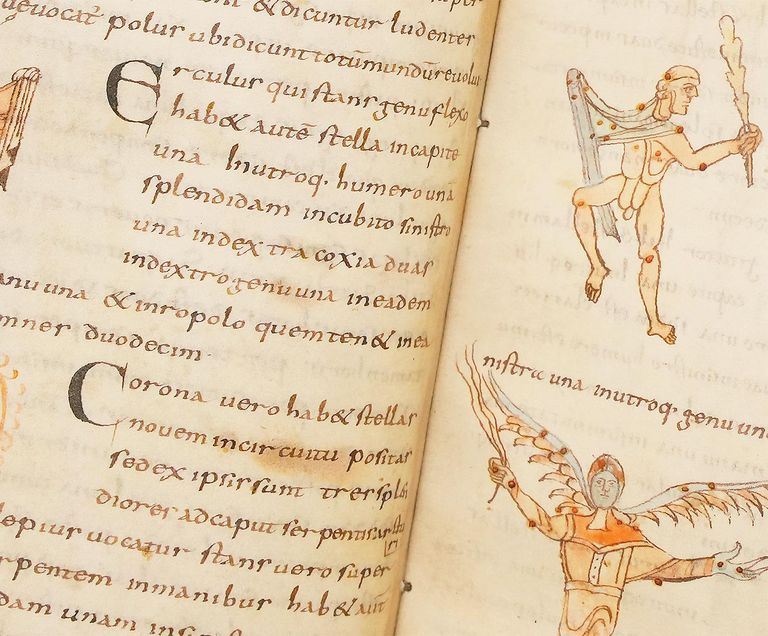 & dicuntur ludenter
uevocat polus ubi dicunt totū mundū revolui
Erculus qui stans genu flexo
hab& autē stella in capite
una In utroq. humero unā
splendidam in cubito sinistro
una in dextra coxia duas
in dextro genu una in eadem
manu una & in ropolo quem ten& in ea
duodecim
Corona vero hab& stellas
novem in circuitu positas
sed ex ipsis sunt tres splē
diores ad caput serpentis
uocatur stans vero super
rpentem in manibus hab& aut
dam unam
nistra una in utroq. genu una